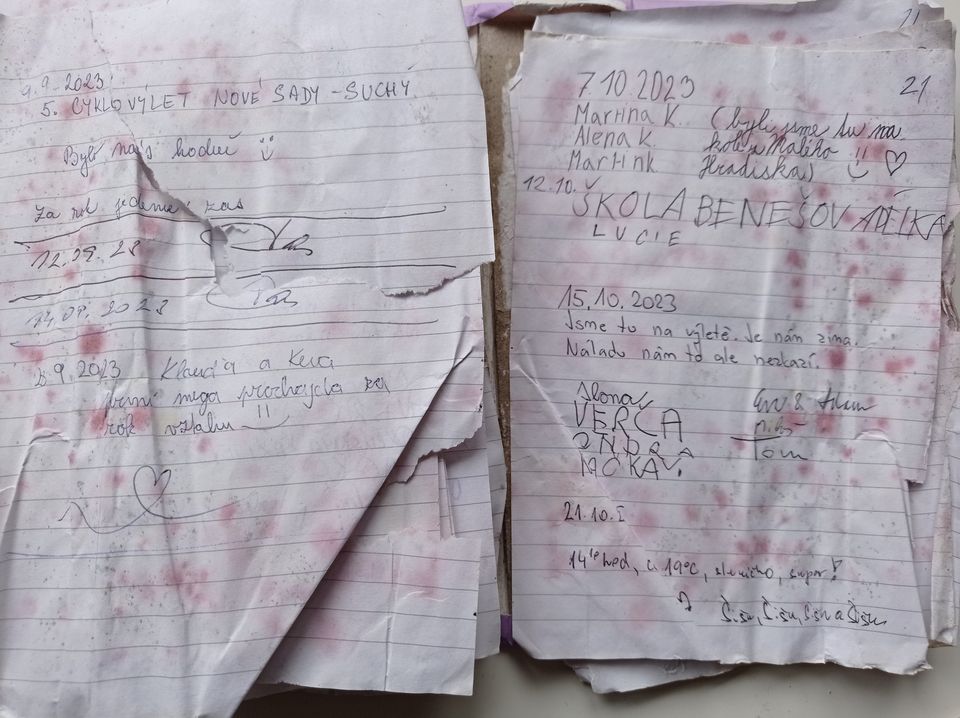 9.9.2023
5. CYKLOVÝLET NOVÉ SADY - SUCHÝ
Bylo nás hodně
Za rok jedeme zas
12.09.23
14.09.2023
9.2023 Klaudia a
první mega procházka za
rok vztahu
21
7.10 2023
Martina K. (byli jsme tu na
Alena K. kole u Malého
Martin K. Hradiska)
12.10. ŠKOLA BENEŠOV ADÉLKA
LUCIE
15.10.2023
Jsme tu na výletě. Je nám zima.
Náladu nám to ale nezkazí.
Ilona
VERČA
ONDRA
Tom
21.10.
14 hod, 19°C, sluníčko, super!